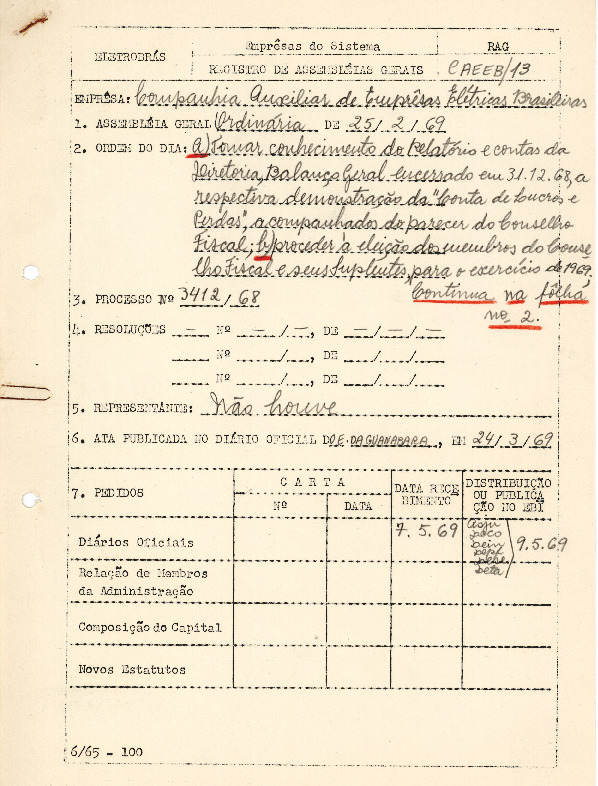 ELETROBRÁS
Emprêsas do Sistema
RAG
REGISTRO DE ASSEMBLÉIAS GERAIS
CAEEB/13
EMPRÊSA: Companhia Auxiliar de Emprêsas Elétricas Brasileiras
1. ASSEMBLÉIA GERAL Ordinária DE 25/2/69
2. ORDEM DO DIA: a) Tomar conhecimento do Relatório e contas da
Diretoria, Balanço Geral encerrado em 31.12.68, a
respectiva demonstração da "Conta de Lucros e
Perdas", acompanhados do parecer do Conselho
Fiscal; b) proceder à eleição dos membros do Conse-
lho Fiscal e seus Suplentes, para o exercício de 1969,
Continua na fôlha
nº 2.
3. PROCESSO Nº 3412/68
4. RESOLUÇÕES — Nº —/—, DE —/—/—
___ Nº ___/___, DE ___/___/___
___ Nº ___/___, DE ___/___/___
5. REPRESENTANTE: Não houve
6. ATA PUBLICADA NO DIÁRIO OFICIAL DO E. DA GUANABARA, EM 24/3/69
7. PEDIDOS
CARTA
Nº
DATA
DATA RECE
BIMENTO
DISTRIBUIÇÃO
OU PUBLICA
ÇÃO NO EBI
Diários Oficiais
7.5.69
9.5.69
Relação de Membros
da Administração
Composição do Capital
Novos Estatutos
6/65 - 100